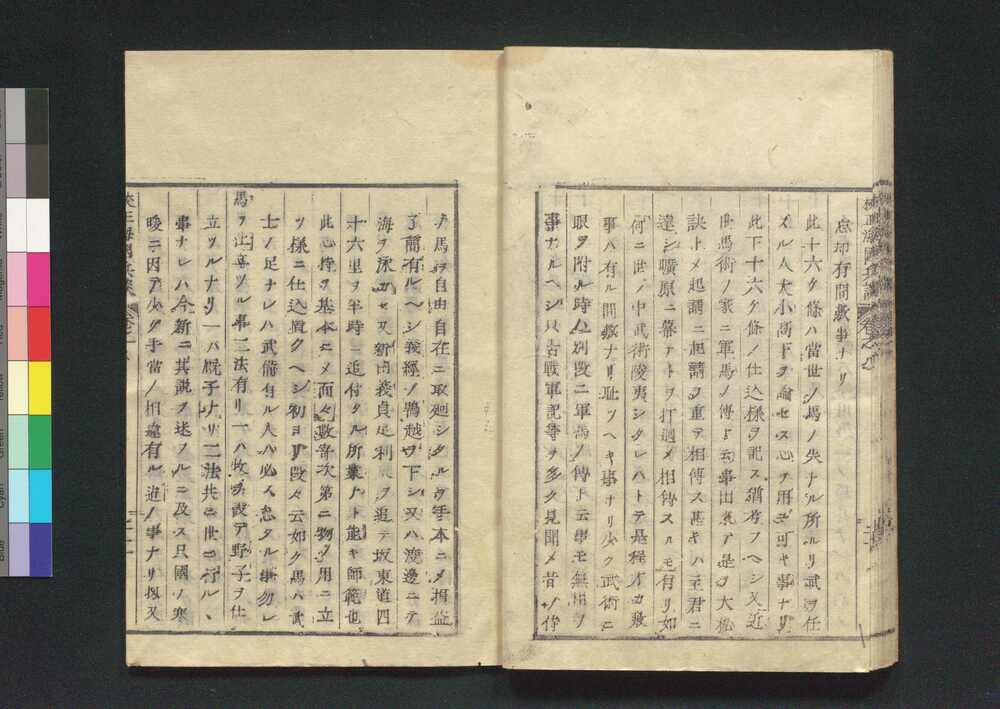 忘却有間敷事ナリ
此十六ケ條ハ當世ノ馬ノ失ナル所ナリ武ヲ任
スル人大小高下ヲ論セス心ヲ用ユ可キ事ナリ
此下十六ケ條ノ仕込様ヲ記ス猶考フヘシ又近
世馬術ノ家ニ軍馬ノ傳ト云事出来テ是ヲ大秘
訣トメ起請ニ起請ヲ重テ相傳ス甚キハ主君ニ
達シ曠原ニ幕ナトヲ打廻メ相傳スルモ有リ如
何ニ世ノ中武術陵夷シタレハトテ是程オカ敷
事ハ有ル間敷ナリ耻ツヘキ事ナリ少ク武術ニ
眼ヲ附ル時ハ別段ニ軍馬ノ傳ト云事モ無用ヲ
事ナルヘシ只古戦軍記等ヲ多ク見聞メ昔ノ侍
ノ馬ヲ自由自在ニ取廻シタルヲ手本ニメ損益
了簡有ルヘシ義經ノ鵯越ヲ下シ又ハ渡邊ニテ
海ヲ泳カセ又新田義貞足利ヲ追テ坂東道四
十六里ヲ半時ニ追付タル所業ナト能キ師範也
此心持ヲ基本ニメ而々数寄次第ニ物ノ用ニ立
ツ様ニ仕込置クヘシ初ヨリ段々云如ク馬ハ武
士ノ足ナレハ武備有ル人ハ必ス怠タル事勿レ
馬ヲ仕立ツル事二法有リ一ハ牧ヲ設テ野子ヲ仕
立ツルナリ一ハ厩子ナリ二法共ニ世ニ行ル、
事ナレハ今新ニ其説ヲ述フルニ及ス只國ノ寒
暖ニ因テ少ク手當ノ相違有ル迄ノ事ナリ扨又